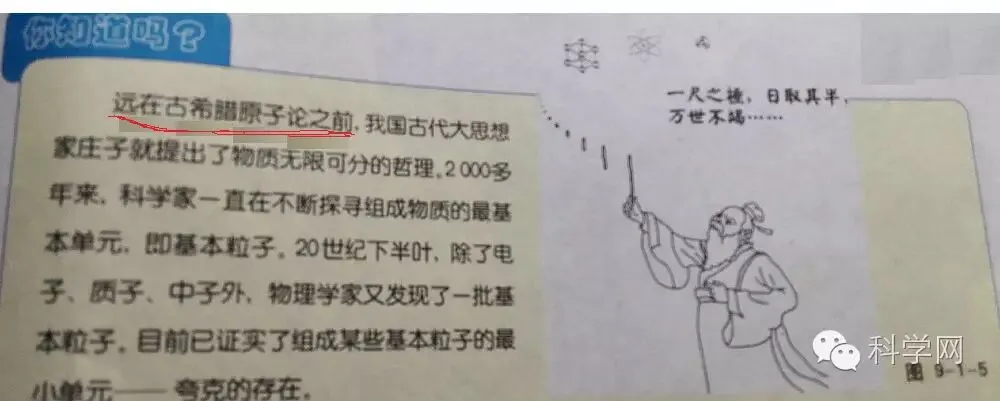 你知道吗?
远在古希腊原子论之前,我国古代大思想
家庄子就提出了物质无限可分的哲理。2 000多
年来,科学家一直在不断探寻组成物质的最基
本单元,即基本粒子。20世纪下半叶,除了电
子、质子、中子外,物理学家又发现了一批基
本粒子。目前已证实了组成某些基本粒子的最
小单元——夸克的存在。
一尺之棰,日取其半,
万世不竭……
图 9-1-5
科学网